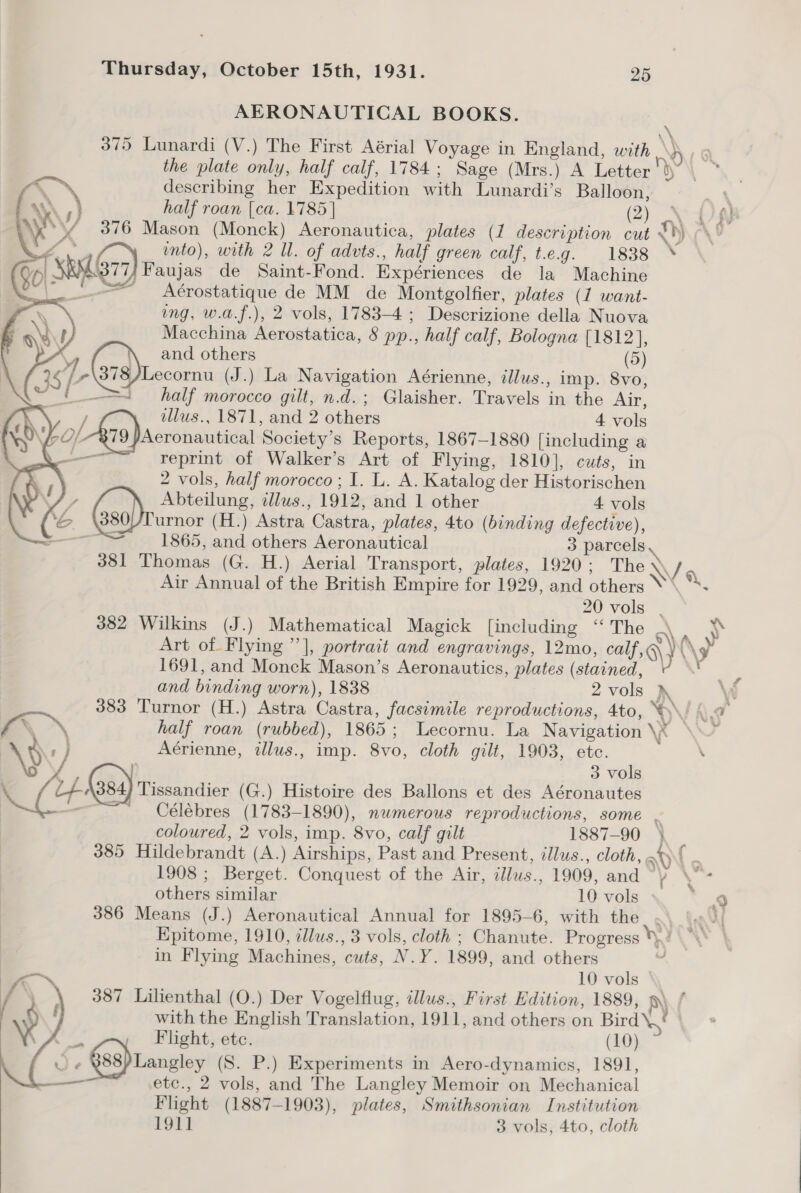 Thursday, October 15th, 1931. 25
AERONAUTICAL BOOKS.
375 Lunardi (V.) The First Aérial Voyage in England, with
the plate only, half calf, 1784; Sage (Mrs.) A Letter
describing her Expedition with Lunardi's Balloon,
half roan [ca. 1785] (2)
376 Mason (Monck) Aeronautica, plates (1 description cut
into), with 2 ll. of advts., half green calf, t.e.g. 1838
377 Faujas de Saint-Fond. Expériences de la Machine
Aérostatique de MM de Montgolfier, plates (1 want-
ing, w.a.f.), 2 vols, 1783-4; Descrizione della Nuova
Macchina Aerostatica, 8 pp., half calf, Bologna [1812],
and others (5)
378 Lecornu (J.) La Navigation Aérienne, illus., imp. 8vo,
half morocco gilt, n.d.; Glaisher. Travels in the Air,
illus., 1871, and 2 others 4 vols
379 Aeronautical Society's Reports, 1867-1880 [including a
reprint of Walker's Art of Flying, 1810], cuts, in
2 vols, half morocco; I. L. A. Katalog der Historischen
Abteilung, illus., 1912, and 1 other 4 vols
380 Turnor (H.) Astra Castra, plates, 4to (binding defective),
1865, and others Aeronautical 3 parcels
381 Thomas (G. H.) Aerial Transport, plates, 1920; The
Air Annual of the British Empire for 1929, and others
20 vols
382 Wilkins (J.) Mathematical Magick [including "The
Art of Flying"], portrait and engravings, 12mo, calf,
1691, and Monck Mason's Aeronautics, plates (stained,
and binding worn), 1838 2 vols
383 Turnor (H.) Astra Castra, facsimile reproductions, 4to,
half roan (rubbed), 1865; Lecornu. La Navigation
Aérienne, illus., imp. 8vo, cloth gilt, 1903, etc.
3 vols
384 Tissandier (G.) Histoire des Ballons et des Aéronautes
Célèbres (1783-1890), numerous reproductions, some
coloured, 2 vols, imp. 8vo, calf gilt 1887-90
385 Hildebrandt (A.) Airships, Past and Present, illus., cloth,
1908; Berget. Conquest of the Air, illus., 1909, and
others similar 10 vols
386 Means (J.) Aeronautical Annual for 1895-6, with the
Epitome, 1910, illus., 3 vols, cloth; Chanute. Progress
in Flying Machines, cuts, N.Y. 1899, and others
10 vols
387 Lilienthal (O.) Der Vogelflug, illus., First Edition, 1889,
with the English Translation, 1911, and others on Bird
Flight, etc. (10)
388 Langley (S. P.) Experiments in Aero-dynamics, 1891,
etc., 2 vols, and The Langley Memoir on Mechanical
Flight (1887-1903), plates, Smithsonian Institution
1911 3 vols, 4to, cloth